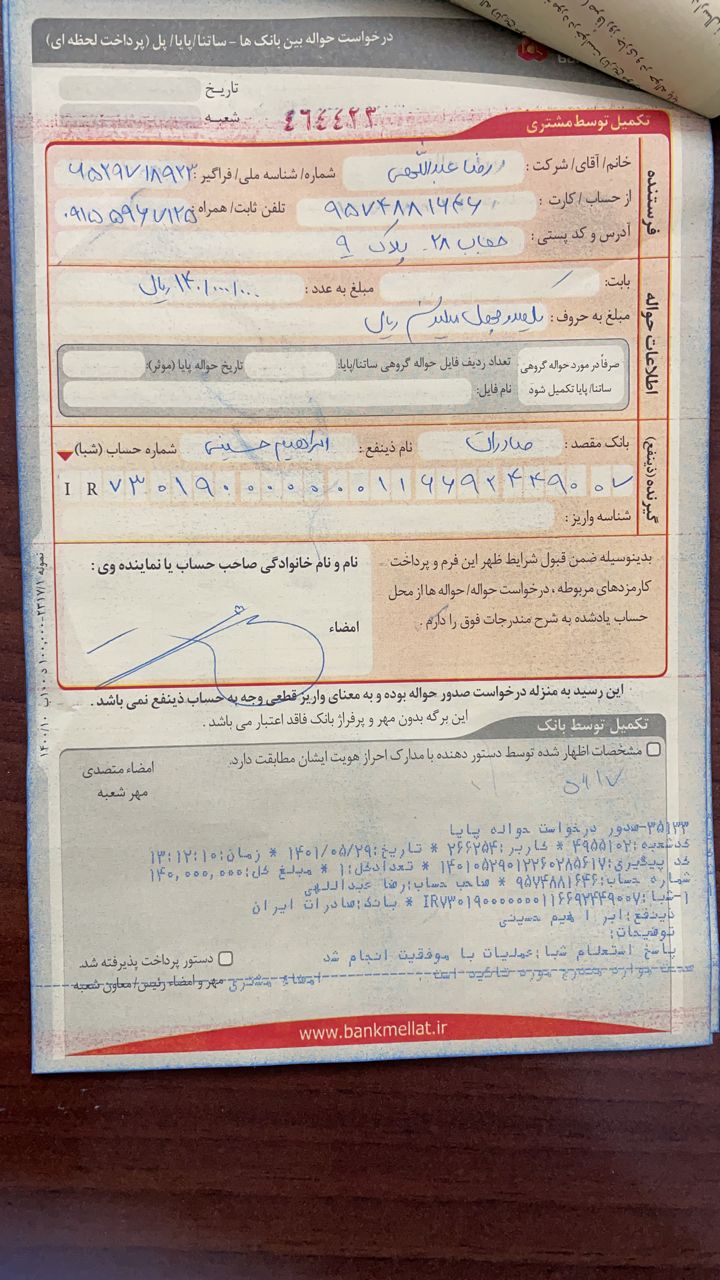 درخواست حواله بین بانک ها - ساتنا/پایا/ پل (پرداخت لحظه ای)
تاریخ
شعبه
٤٦٤٤٢٣
تکمیل توسط مشتری
فرستنده
خانم/ آقای/ شرکت : رضا عبداللهی شماره/ شناسه ملی/ فراگیر :
از حساب / کارت : ۹۵۷۴۸۸۱۶۴۶ تلفن ثابت/ همراه : ۰۹۱۵۵۹۶۷۱۲۵
آدرس و کد پستی : حجاب ۲۸- پلاک ۹
اطلاعات حواله
بابت: مبلغ به عدد : ۱۴۰/۰۰۰/۰۰۰ ریال
مبلغ به حروف : یکصد و چهل میلیون ریال
صرفاً در مورد حواله گروهی ساتنا/ پایا تکمیل شود
تعداد ردیف فایل حواله گروهی ساتنا/پایا: تاریخ حواله پایا (موثر):
نام فایل:
گیرنده (ذینفع)
بانک مقصد : صادرات نام ذینفع : ابراهیم حسینی شماره حساب (شبا)
I R ۷۳۰۱۹۰۰۰۰۰۰۰۰۱۱۶۶۹۲۴۴۹۰۰۷
شناسه واریز :
بدینوسیله ضمن قبول شرایط ظهر این فرم و پرداخت
کارمزدهای مربوطه ، درخواست حواله/ حواله ها از محل
حساب یادشده به شرح مندرجات فوق را دارم .
نام و نام خانوادگی صاحب حساب یا نماینده وی :
امضاء
این رسید به منزله درخواست صدور حواله بوده و به معنای واریز قطعی وجه به حساب ذینفع نمی باشد .
این برگه بدون مهر و پرفراژ بانک فاقد اعتبار می باشد .
تکمیل توسط بانک
مشخصات اظهار شده توسط دستور دهنده با مدارک احراز هویت ایشان مطابقت دارد.
امضاء متصدی
مهر شعبه
۵۶۱۷
۳۵۱۳۳-صدور درخواست حواله پایا
کدشعبه:۴۹۵۵۱۰۲ * کاربر:۲۶۶۲۵۴ * تاریخ:۱۴۰۱/۰۵/۲۹ * زمان:۱۳:۱۲:۱۰
کد پیگیری:۱۴۰۱۰۵۲۹۰۱۲۲۶۰۲۸۵۶۱۷ * تعدادکل:۱ * مبلغ کل:۱۴۰,۰۰۰,۰۰۰
شماره حساب:۹۵۷۴۸۸۱۶۴۶ * صاحب حساب:رضا عبداللهی
۱-شبا:IR۷۳۰۱۹۰۰۰۰۰۰۰۰۱۱۶۶۹۲۴۴۹۰۰۷ * بانک:صادرات ایران
ذینفع:ابراهیم حسینی
توضیحات:
پاسخ استعلام شبا:عملیات با موفقیت انجام شد
امضاء مشتری
دستور پرداخت پذیرفته شد.
مهر و امضاء رئیس/ معاون شعبه
www.bankmellat.ir